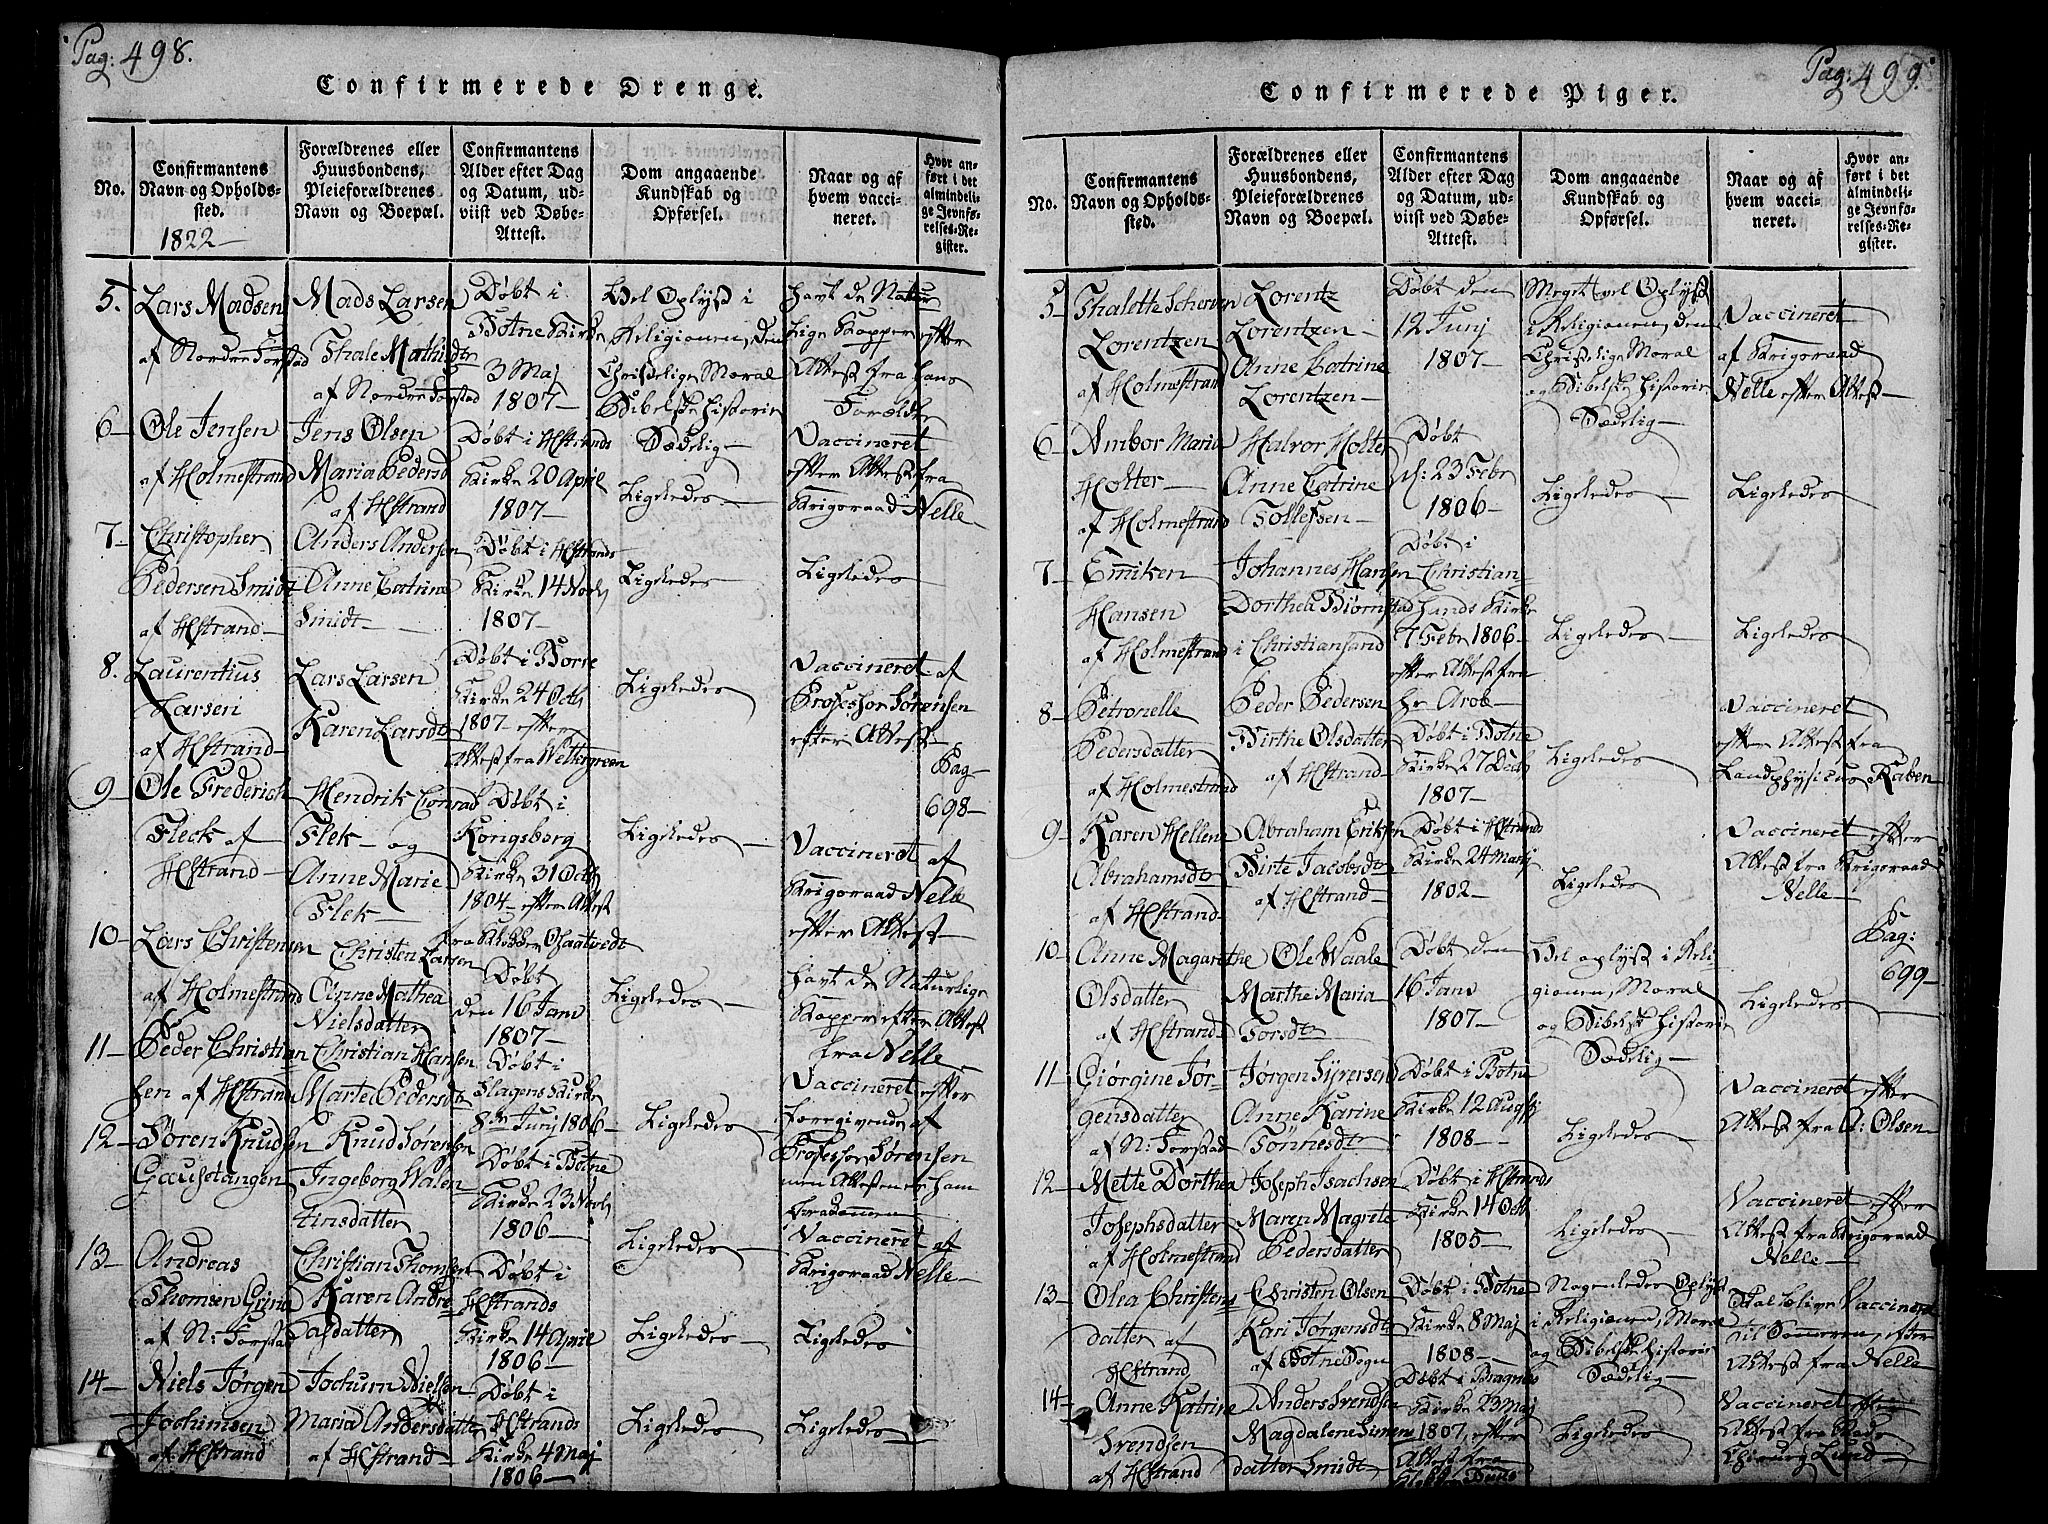 Pag: 498.
Confirmerede Drenge.
No.
Confirmantens
Navn og Opholds-
sted.
1822 —
Forældrenes eller
Huusbondens,
Pleieforældrenes
Navn og Boepæl.
Confirmantens
Alder efter Dag
og Datum, ud-
viist ved Døbe-
Attest.
Dom angaaende
Kundskab og
Opførsel.
Naar og af
hvem vacci-
neret.
Hvor an-
ført i det
almindeli-
ge Jevnfø-
relses-Re-
gister.
5.
Lars Madsen
af Nordre Forstad
Mads Larsen
Thale Mathisdtr
af Nordre Forstad
Døbt i
Botne Kirke
3 Maj
1807 —
Vel Oplyst i
Religionen, den
Christelige Moral
Bibelske Historie
Sædelig —
Havt de Natur
lige Kopper efter
Attest fra hans
Forældre
6 —
Ole Jensen
af Holmestrand
Jens Olsen
Maria Pedersd
af HStrand
Døbt i HStrands
Kirke 20 April
1807 —
Ligeledes —
Vaccineret
efter Attest fra
Krigsraad Nelle —
7 —
Christopher
Pedersen Smidt
af HStrand —
Anders Andersen
Anne Catrine
Smidt —
Døbt i HStrands
Kirke 14 Novb
1807 —
Ligeledes
Ligeledes —
8.
Laurentius
Larsen
af HStrand —
Lars Larsen
Karen Larsdtr
Døbt i Borre
Kirke 24 Octb
1807 — efter
Attest fra Wettergreen
Ligeledes
Vaccineret af
Professor Sørensen
efter Attest —
9 —
Ole Frederich
Fleck af
HStrand —
Hendrik Conrad
Flek — og
Anne Marie
Flek —
Døbt i
Kongsberg
Kirke 31 Octb
1804 — efter Attest
fra Klokker
Ligeledes
Vaccineret af
Krigsraad Nelle
efter Attest —
Pag —
698 —
10 —
Lars Christensen
af Holmestrand
Christen Larsen
Anne Mathea
Nielsdatter
Døbt
den 16 Janv
1807 —
Ligeledes —
Havt de Naturlige
Kopper efter Attest
fra Nelle —
11 —
Peder Christian
sen af HStrand
Christian Hansen
Marte Pedersdtr
Døbt i
Slagens Kirke
8de Junj 1806 —
Ligeledes —
Vaccineret efter
Foregivende af
Professor Sørensen
men Attesten er ham
frakommen
12 —
Søren Knudsen
Gausetangen
Knud Sørensen
Ingeborg Walen
tinsdatter
Døbt i Botne
Kirke 23 Novb
1806 —
Ligeledes —
Vaccineret af
Krigsraad Nelle —
13 —
Andreas
Thomsen
af N: Forstad
Christian Thomsen
Karen Andre
asdatter
Døbt i
HStrands
Kirke 14 April
1806 —
Ligeledes —
Ligeledes
14 —
Niels Jørgen
Jochimsen
af HStrand
Jochum Nielsen
Maria Andersdatter
af HStrand —
Døbt i
HStrands
Kirke 4 Maj
1806 —
Ligeledes —
Ligeledes —
Pag: 499.
Confirmerede Piger.
No.
Confirmantens
Navn og Opholds-
sted.
Forældrenes eller
Huusbondens,
Pleieforældrenes
Navn og Boepæl.
Confirmantens
Alder efter Dag
og Datum, ud-
viist ved Døbe-
Attest.
Dom angaaende
Kundskab og
Opførsel.
Naar og af
hvem vacci-
neret.
Hvor an-
ført i det
almindeli-
ge Jevnfø-
relses-Re-
gister.
5 —
Thalette
Lorentzen
af Holmestrand
Lorentz
Lorentzen —
Anne Catrine
Lorentzen —
Døbt den
12 Junj
1807 —
Meget vel Oplyst
i Religionen, den
Christelige Moral
og Bibelske Historie
Sædelig —
Vaccineret
af Krigsraad
Nelle efter Attest —
6 —
Ambor Maria
Holter —
af Holmestrand
Halvor Holter
Anne Catrine
Tollefsen —
Døbt
d: 23 Febr
1806 —
Ligeledes —
Ligeledes —
7 —
Emiken
Hansen
af Holmestrand
Johannes Hansen
Dorthea Biørnstad
i Christiansand
Døbt i
Christian-
sands Kirke
7 Febr 1806 —
efter Attest fra
Hr Arob —
Ligeledes —
Ligeledes —
8 —
Petronelle
Pedersdatter
af Holmestrand
Peder Pedersen
Birthe Olsdatter
af HStrand
Døbt i Botne
Kirke 27 Decb
1807 —
Ligeledes —
Vaccineret
efter Attest fra
Landphysicus Raben
9 —
Karen Hellene
Abrahamsdtr
af HStrand —
Abraham Eriksen
Birte Jacobsdtr
af HStrand —
Døbt i HStrands
Kirke 24 Martj
1802 —
Ligeledes
Vaccineret efter
Attest fra Krigsraad
Nelle —
10 —
Anne Magarethe
Olsdatter
af HStrand —
Ole Waale
Marthe Maria
Torsdtr
Døbt den
16 Janv
1807 —
Vel oplyst i Reli-
gionen, Moral
og Bibelsk Historie
Sædelig —
Ligeledes —
Pag:
699 —
11 —
Giørgine Jør-
gensdatter
af N: Forstad
Jørgen Syversen
Anne Karine
Tønnesdtr
Døbt i Botne
Kirke 12 Augstj
1808 —
Ligeledes —
Vaccineret efter
Attest fra A: Olsen —
12 —
Mette Dorthea
Josephsdatter
af Holmestrand
Joseph Isachsen
Maren Magrete
Pedersdatter
Døbt i HStrands
Kirke 14 Octb
1805 —
Ligeledes —
Vaccineret efter
Attest fra Krigsraad
Nelle —
13 —
Olea Christens
datter af
HStrand
Christen Olsen
Kari Jørgensdtr
af Botne Sogn
Døbt i Botne
Kirke 8 Maj
1808 —
Nogenledes Oplyst
i Religionen, Moral
og Bibelske Historie
Sædelig —
Skal blive Vaccineret
til Sommeren, efter
Attest fra Nelle
14 —
Anne Katrine
Svendsen
af HStrand
Anders Svendsen
Magdalene Simens
datter Smidt
Døbt i Bragnes
Kirke 23 Maj
1807, efter
Attest fra
Klokker
Ligeledes —
Vaccineret efter
Attest fra
Chirurg Lund —